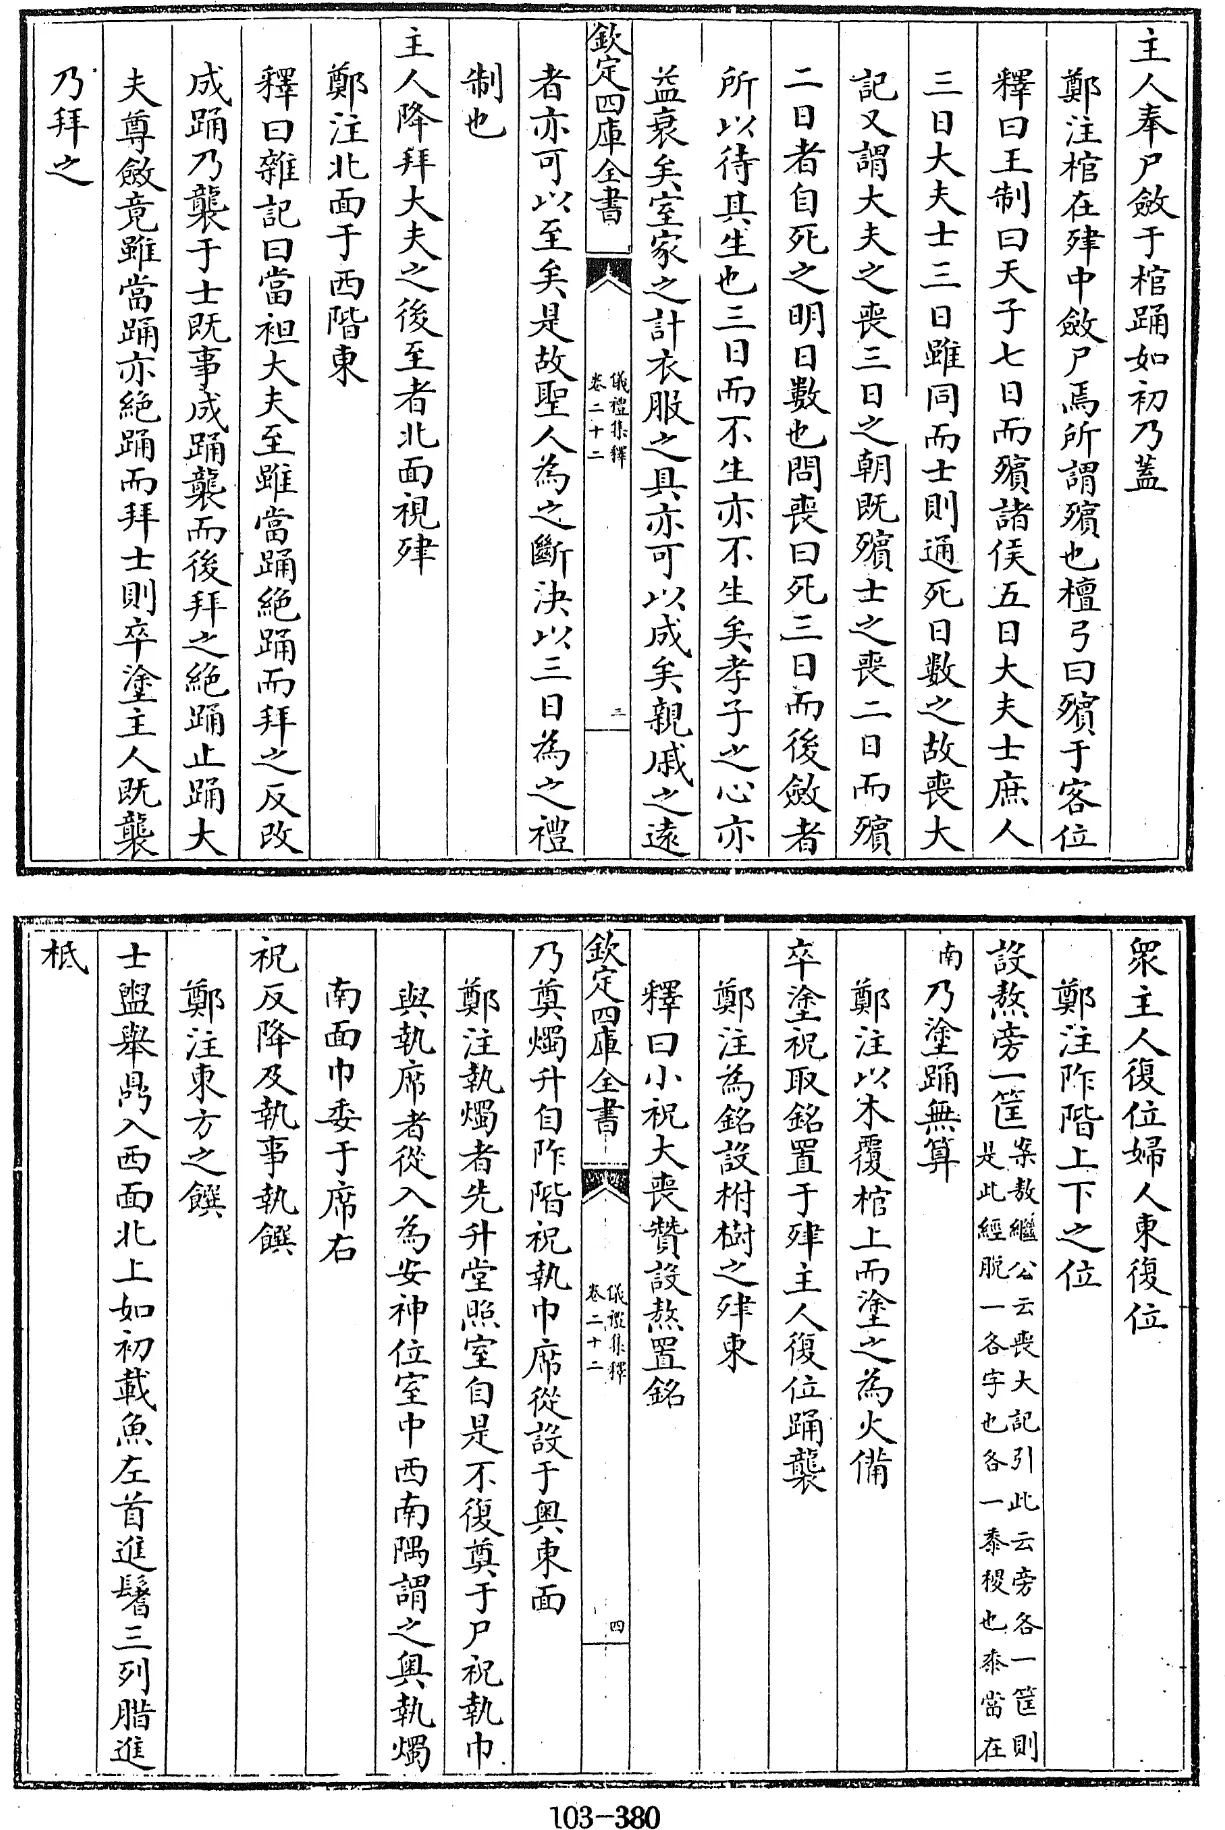 主人奉尸斂于棺踊如初乃蓋
鄭注棺在肂中斂尸焉所謂殯也檀弓曰殯于客位
釋曰王制曰天子七日而殯諸侯五日大夫士庶人
三日大夫士三日雖同而士則通死日數之故喪大
記又謂大夫之喪三日之朝既殯士之喪二日而殯
二日者自死之明日數也問喪曰死三日而後斂者
所以待其生也三日而不生亦不生矣孝子之心亦
益衰矣室家之計衣服之具亦可以成矣親戚之遠
欽定四庫全書
儀禮集釋
卷二十二
三
者亦可以至矣是故聖人為之斷決以三日為之禮
制也
主人降拜大夫之後至者北面視肂
鄭注北面于西階東
釋曰雜記曰當袒大夫至雖當踊絕踊而拜之反改
成踊乃襲于士既事成踊襲而後拜之絕踊止踊大
夫尊斂竟雖當踊亦絕踊而拜士則卒塗主人既襲
乃拜之
眾主人復位婦人東復位
鄭注阼階上下之位
設熬旁一筐案敖繼公云喪大記引此云旁各一筐則
是此經脫一各字也各一黍稷也黍當在
南乃塗踊無算
鄭注以木覆棺上而塗之為火備
卒塗祝取銘置于肂主人復位踊襲
鄭注為銘設柎樹之肂東
釋曰小祝大喪贊設熬置銘
欽定四庫全書
儀禮集釋
卷二十二
四
乃奠燭升自阼階祝執巾席從設于奧東面
鄭注執燭者先升堂照室自是不復奠于尸祝執巾
與執席者從入為安神位室中西南隅謂之奧執燭
南面巾委于席右
祝反降及執事執饌
鄭注東方之饌
士盥舉鼎入西面北上如初載魚左首進鬐三列腊進
柢
103-380